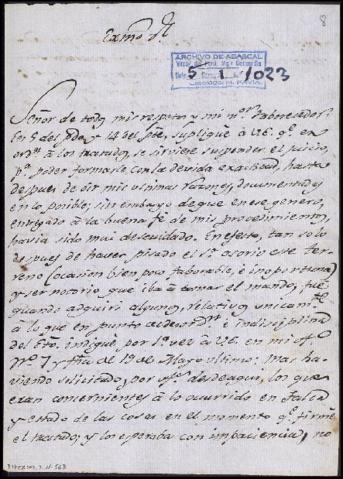 8
Exmo Sr
ARCHIVO DE ABASCAL
5 1 1023
Señor de todo mi respeto y mi mor favorecedor:
En 5 del pdo y 14 del pte, supliqué à V.E. qe en
orn à los tratados, se sirviese suspender el juicio,
pa poder formarle, con la devida exactitud, hasta
despues de oir mis ultimas razones, documentadas
en lo posible; sin embargo de que en ese genero,
entregado à la buena fé de mis procedimientos,
havia sido mui descuidado. En efecto, tan solo
despues de haver pisado el Sr Osorio este ter-
reno (ocasion bien poco faborable, é inoportuna)
y ser notorio que iba à tomar el mando, fue
quando adquirí algunos, relativos unicamte
à lo que en punto al desorden é indisciplina
del Exto, indiqué por 1a vez à V.E. en mi ofo
No 7 y fha de 19 de Mayo ultimo: mas ha-
viendo solicitado, por ofos desde aqui, los que
eran concernientes à lo ocurrido en Talca
y estado de las cosas en el momento qe firmé
el tratado, y los esperaba con impaciencia, no